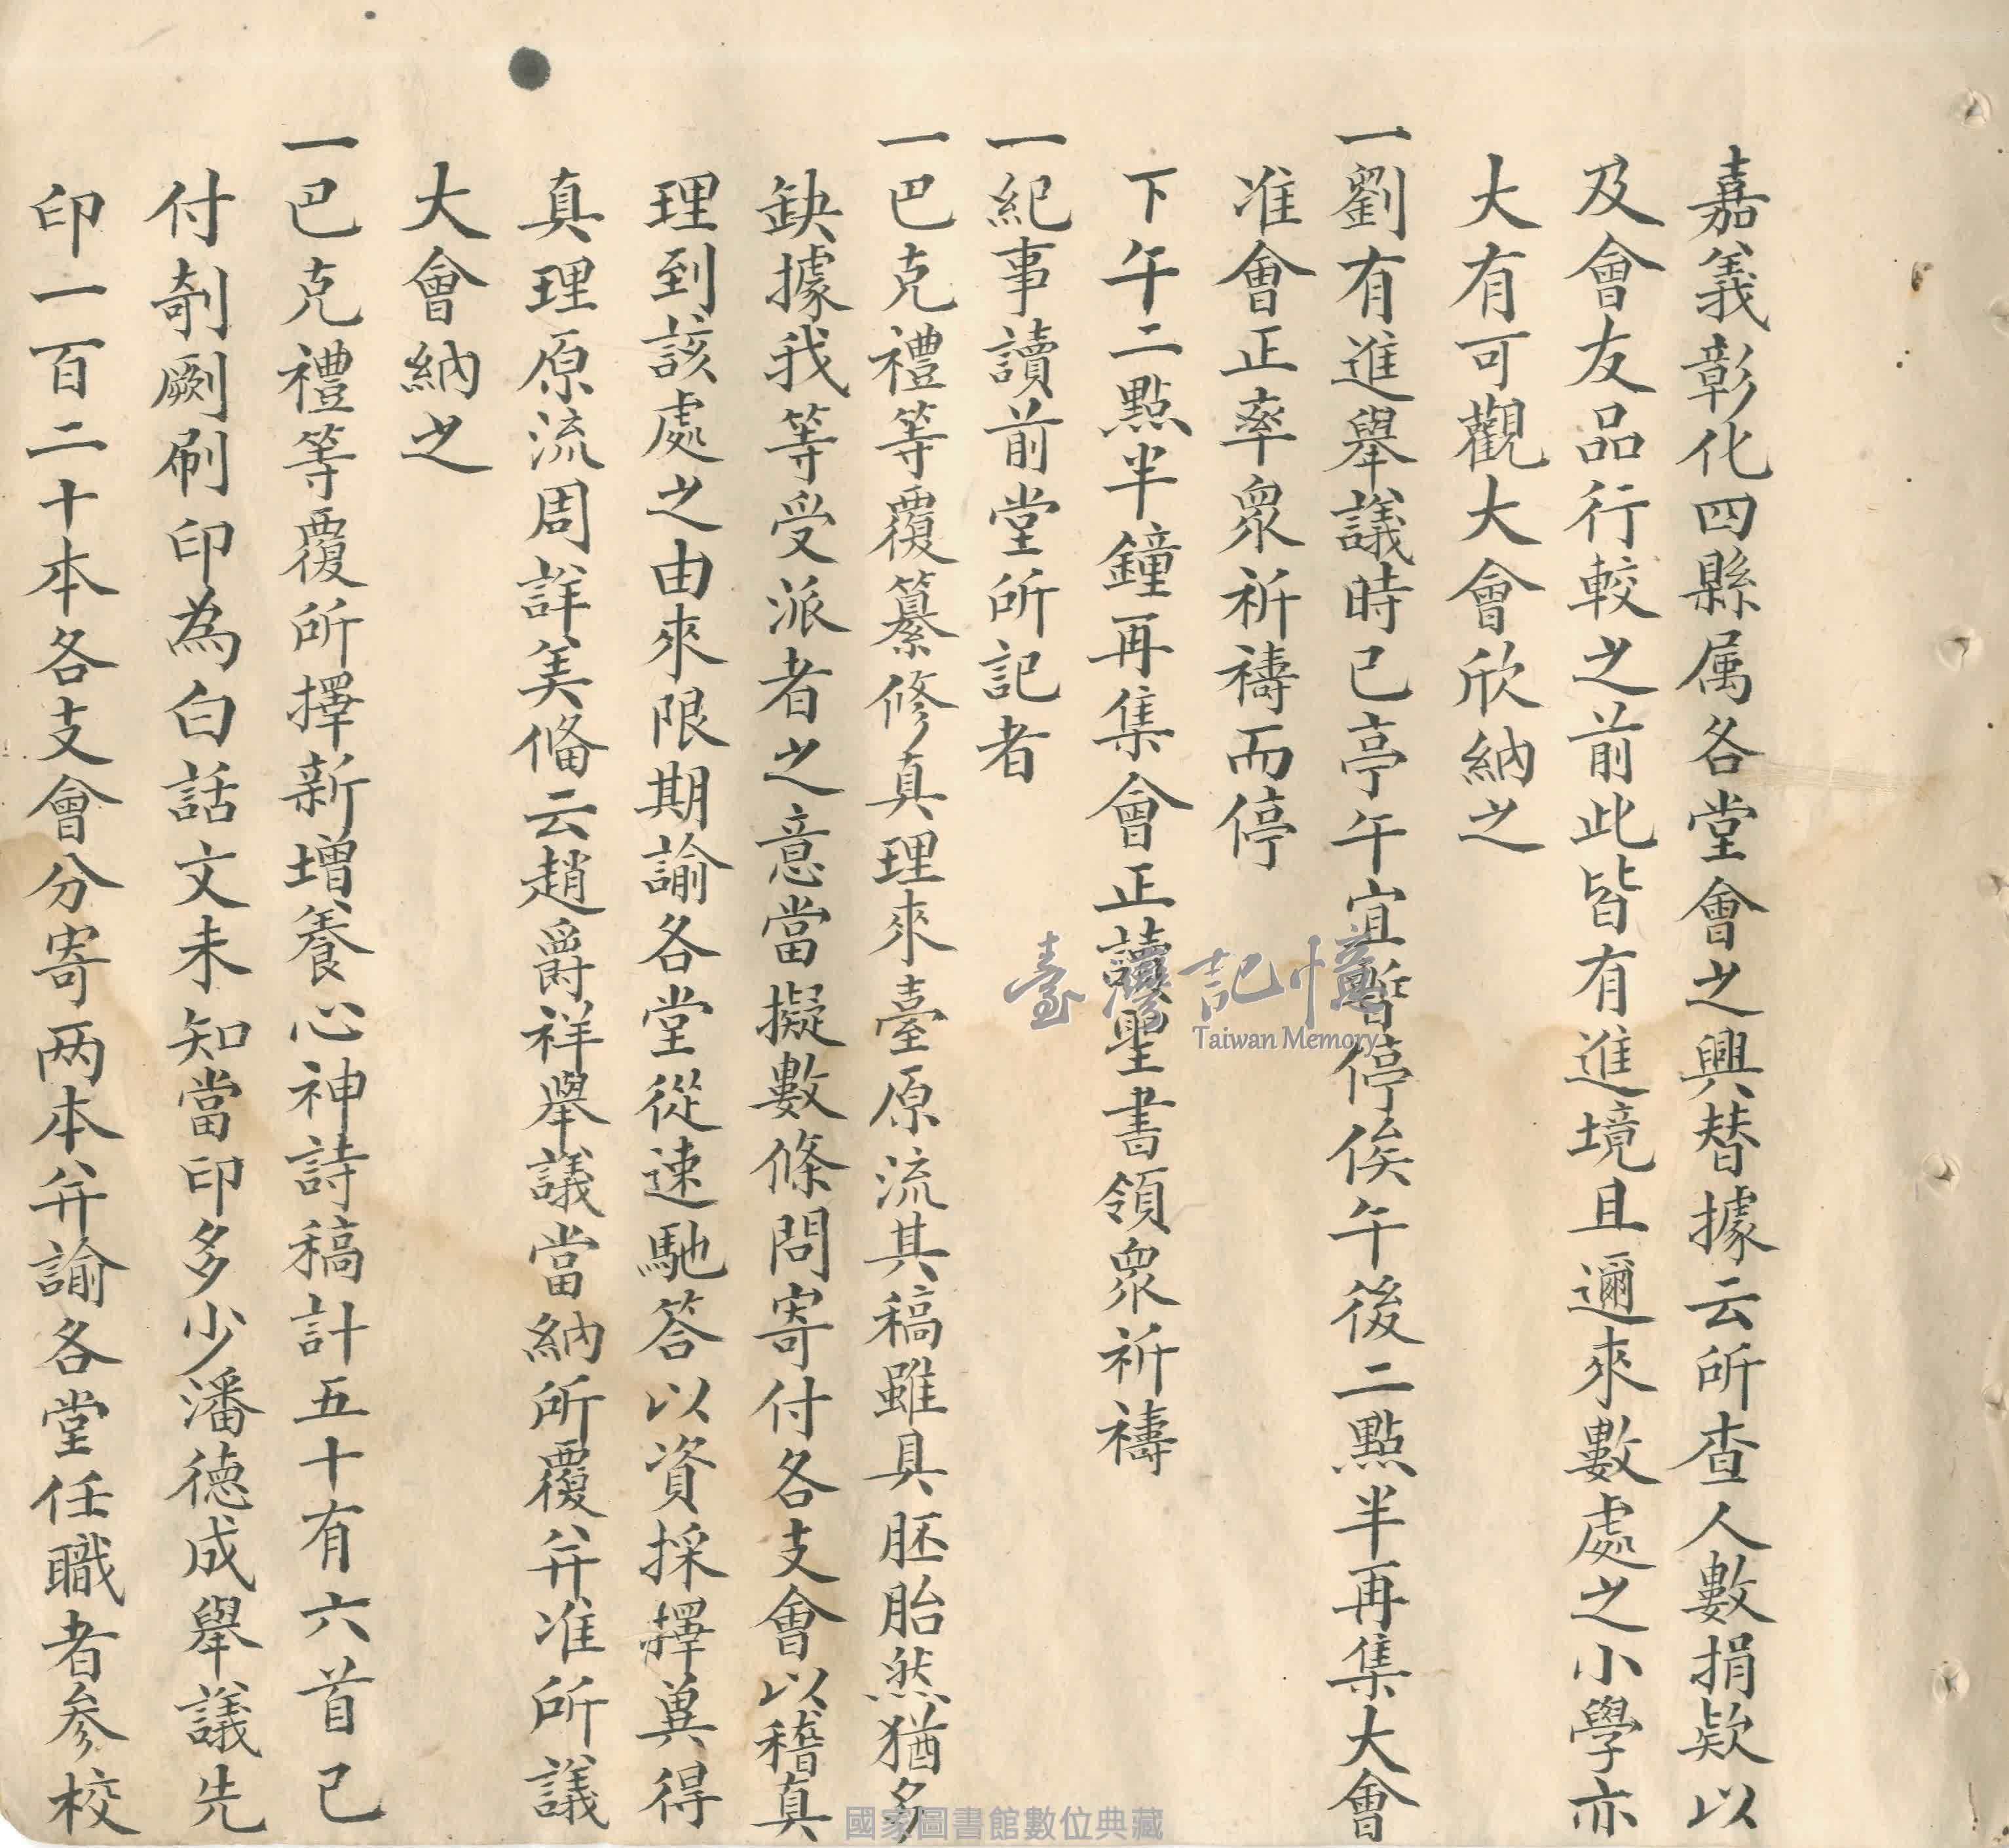 嘉義彰化四縣属各堂會之興替據云所查人數捐欵以
及會友品行較之前此皆有進境且邇來數處之小學亦
大有可觀大會欣納之
一劉有進舉議時已亭午宜暫停俟午後二點半再集大會
准會正率眾祈禱而停
下午二點半鐘再集會正讀聖書領眾祈禱
一紀事讀前堂所記者
一巴克禮等覆纂修真理來臺原流其稿雖具胚胎然猶多
缺據我等受派者之意當擬數條問寄付各支會以稽真
理到該處之由來限期諭各堂從速馳答以資採擇兾得
真理原流周詳美俻云趙爵祥舉議當納所覆并准所議
大會納之
一巴克禮等覆所擇新增養心神詩稿計五十有六首已
付剞劂刷印為白話文未知當印多少潘德成舉議先
印一百二十本各支會分寄两本并諭各堂任職者參校
臺灣記憶
Taiwan Memory
國家圖書館數位典藏